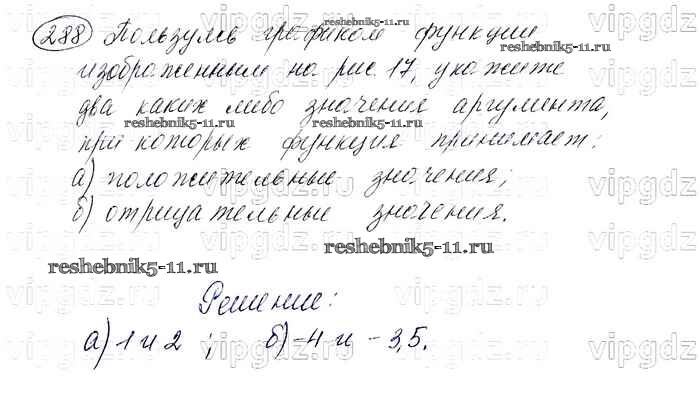 288 Пользуясь графиком функции
reshebnik5-11.ru
reshebnik5-11.ru
изображенным на рис. 17, укажите
два каких либо значения аргумента,
reshebnik5-11.ru
reshebnik5-11.ru
при которых функция принимает:
а) положительные значения;
б) отрицательные значения.
reshebnik5-11.ru
reshebnik5-11.ru
Решение:
а) 1 и 2 ; б) -4 и -3,5.
vipgdz.ru